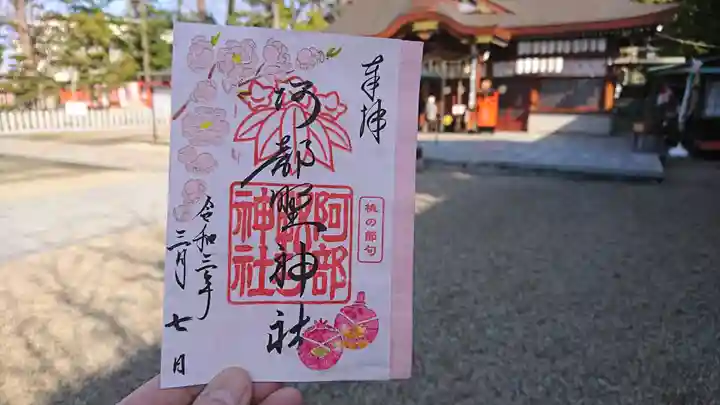 奉拝
阿都野神社
阿部野神社
桃の節句
令和三年
三月七日